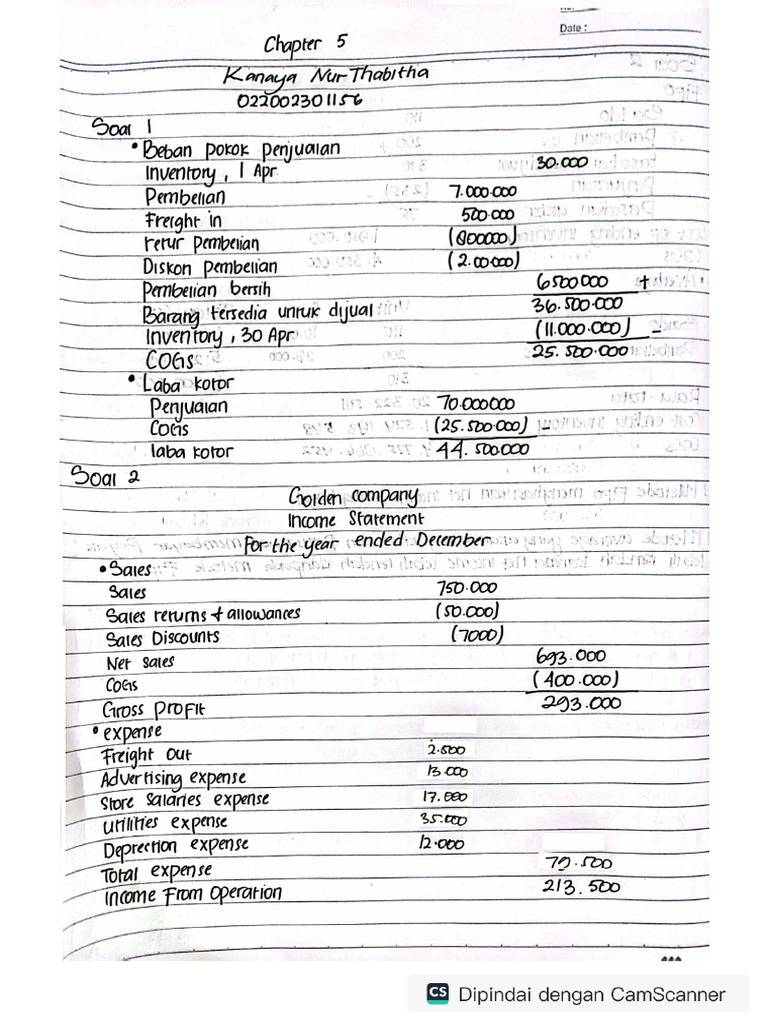 Date :
Chapter 5
Kanaya Nur Thabitha
022002301156
Soal 1
• Beban pokok penjualan
Inventory, 1 Apr 30.000
Pembelian 7.000.000
Freight in 500.000
retur pembelian (800000)
Diskon pembelian (2.00.000)
Pembelian bersih 6500000 +
Barang tersedia untuk dijual 36.500.000
Inventory, 30 Apr (11.000.000) -
COGS 25.500.000
• Laba kotor
Penjualan 70.000000
COGS (25.500.000) -
laba kotor 44.500.000
Soal 2
Golden company
Income Statement
For the year ended December
• Sales
Sales 750.000
Sales returns + allowances (50.000)
Sales Discounts (7000)
Net sales 693.000
COGS (400.000)
Gross profit 293.000
• expense
Freight out 2.500
Advertising expense 13.000
Store salaries expense 17.000
utilities expense 35.000
Deprection expense 12.000
Total expense 79.500
Income From Operation 213.500
CS Dipindai dengan CamScanner